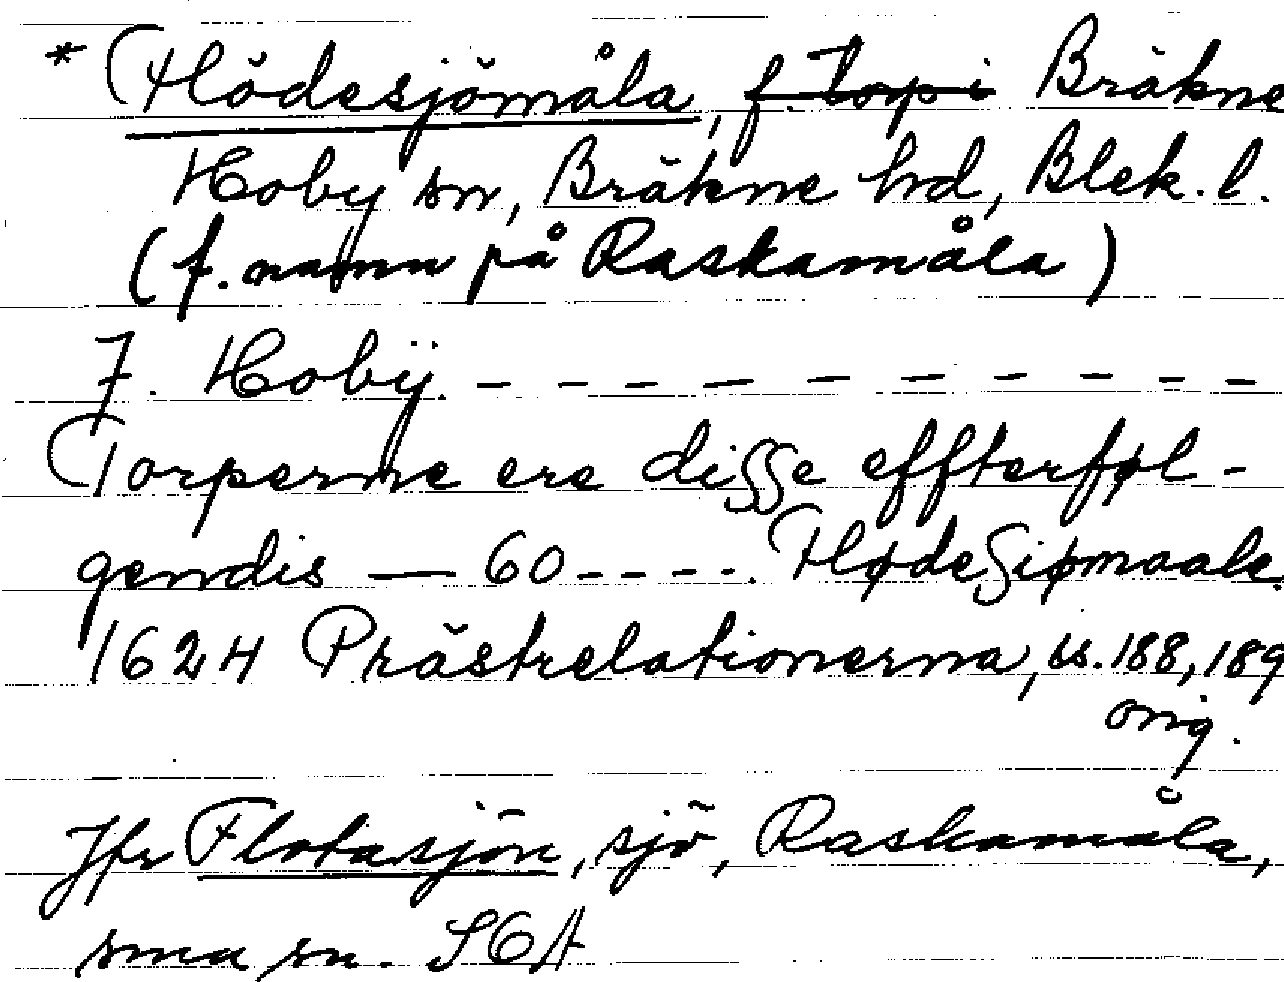 * Flödesjömåla, f. Torp i Bräkne
Hoby sn, Bräkne hd, Blek. l.
(f. namn på Raskamåla)
7. Hobÿ. - - - - - - - - - -
Torperne ere disse effterføl-
gendis — 60 - - - -. Flødesiømaale.
1624 Prästrelationerna, s. 188, 189
orig.
Jfr Flotasjön, sjö, Raskamåla,
sma sn. SGA